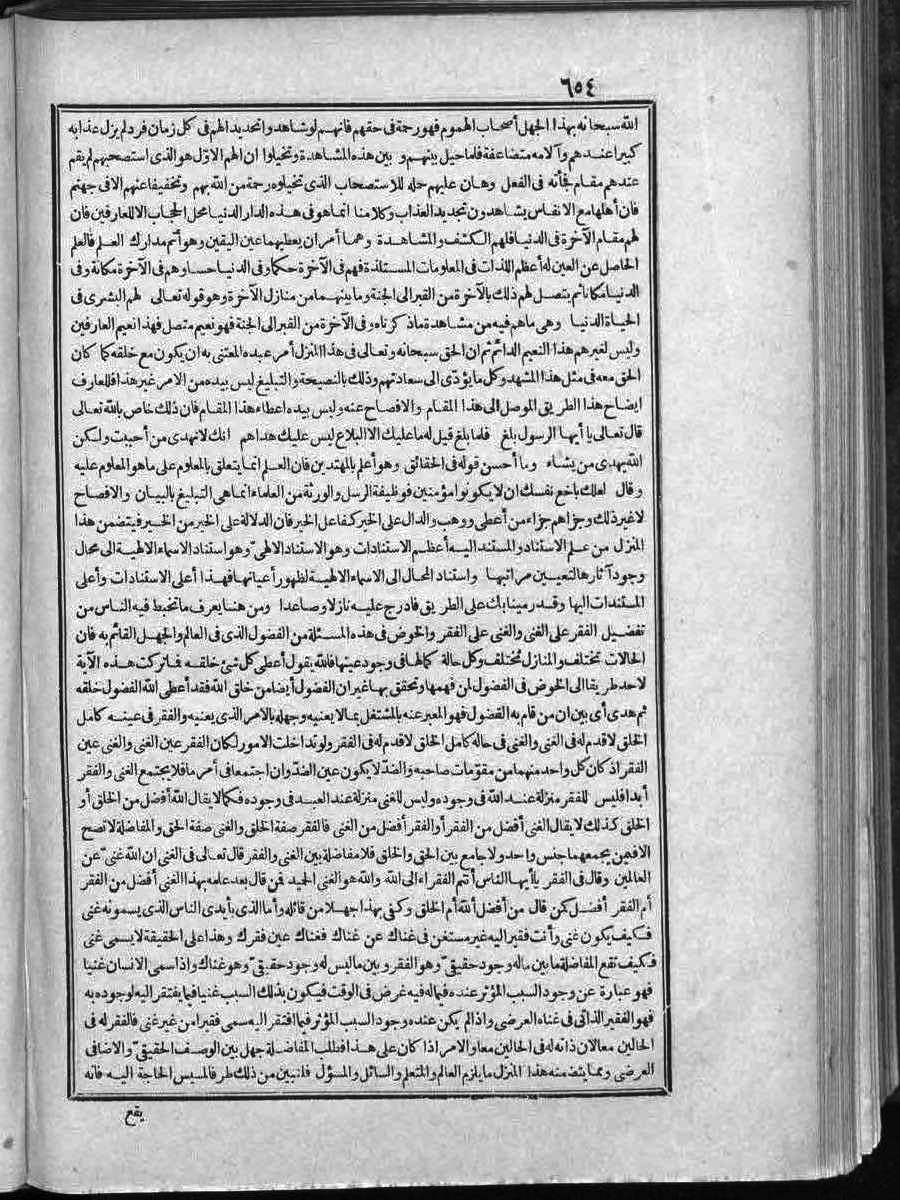 ٦٥٤
الله سبحانه بهذا الجهل أصحاب الهموم فهو رحمة فى حقهم فانهم لو شاهدوا تجديد الهم فى كل زمان فرد لم يزل عذابه
كبيرا عندهم وآلامه متضاعفة فلما حيل بينهم و بين هذه المشاهدة وتخيلوا ان الهم الاوّل هو الذى استصحبهم لم يقم
عندهم مقام فجأته فى الفعل وهان عليهم حمله للاستصحاب الذى تخيلوه رحمة من الله بهم وتخفيفا عنهم الا فى جهنم
فان أهلها مع الانفاس يشاهدون تجديد العذاب وكلامنا انما هو فى هذه الدار الدنيا محل الحجاب الا للعارفين فان
لهم مقام الآخرة فى الدنيا فلهم الكشف والمشاهدة وهما أمران يعطيهما عين اليقين وهو أتم مدارك العلم فالعلم
الحاصل عن العين له أعظم اللذات فى المعلومات المستلذة فهم فى الآخرة حكما وفى الدنيا حسا وهم فى الآخرة مكانة وفى
الدنيا مكانا ثم يتصل لهم ذلك بالآخرة من القبر الى الجنة وما بينهما من منازل الآخرة وهو قوله تعالى لهم البشرى فى
الحياة الدنيا وهى ما هم فيه من مشاهدة ما ذكرناه وفى الآخرة من القبر الى الجنة فهو نعيم متصل فهذا نعيم العارفين
وليس لغيرهم هذا النعيم الدائم ثم ان الحق سبحانه وتعالى فى هذا المنزل أمر عبده المعتنى به ان يكون مع خلقه كما كان
الحق معه فى مثل هذا المشهد وكل ما يؤدّى الى سعادتهم وذلك بالنصيحة والتبليغ ليس بيده من الامر غير هذا فللعارف
ايضاح هذا الطريق الموصل الى هذا المقام والافصاح عنه وليس بيده اعطاء هذا المقام فان ذلك خاص بالله تعالى
قال تعالى يا أيها الرسول بلغ فلما بلغ قيل له ما عليك الا البلاغ ليس عليك هداهم انك لا تهدى من أحببت ولكن
الله يهدى من يشاء وما أحسن قوله فى الحقائق وهو أعلم بالمهتدين فان العلم انما يتعلق بالمعلوم على ما هو المعلوم عليه
وقال لعلك باخع نفسك ان لا يكونوا مؤمنين فوظيفة الرسل والورثة من العلماء انما هى التبليغ بالبيان والافصاح
لا غير ذلك وجزاهم جزاء من أعطى ووهب والدال على الخير كفاعل الخير فان الدلالة على الخير من الخير فيتضمن هذا
المنزل من علم الاستناد والمستند اليه أعظم الاستنادات وهو الاستناد الالهىّ وهو استناد الاسماء الالهية الى محال
وجود آثارها لتعيين مراتبها واستناد المحال الى الاسماء الالهية لظهور أعيانها فهذا أعلى الاستنادات وأعلى
المستندات اليها وقد رمينا بك على الطريق فادرج عليه نازلا وصاعدا ومن هنا يعرف ما تخبط فيه الناس من
تفضيل الفقر على الغنى والغنى على الفقر والخوض فى هذه المسئلة من الفضول الذى فى العالم والجهل القائم به فان
الحالات تختلف والمنازل تختلف وكل حالة كمالها فى وجود عينها فالله يقول أعطى كل شئ خلقه فما تركت هذه الآية
لاحد طريقا الى الخوض فى الفضول لمن فهمها وتحقق بها غير ان الفضول أيضا من خلق الله فقد أعطى الله الفضول خلقه
ثم هدى أى بين ان من قام به الفضول فهو المعبر عنه بالمشتغل بما لا يعنيه وجهله بالامر الذى يعنيه والفقر فى عينه كامل
الخلق لا قدم له فى الغنى والغنى فى حاله كامل الخلق لا قدم له فى الفقر ولو تداخلت الامور لكان الفقر عين الغنى والغنى عين
الفقر اذ كان كل واحد منهما من مقوّمات صاحبه والضدّ لا يكون عين الضدّ وان اجتمعا فى أمر ما فلا يجتمع الغنى والفقر
أبدا فليس للفقر منزلة عند الله فى وجوده وليس للغنى منزلة عند العبد فى وجوده فكما لا يقال الله أفضل من الخلق أو
الخلق كذلك لا يقال الغنى أفضل من الفقر أو الفقر أفضل من الغنى فالفقر صفة الخلق والغنى صفة الحق والمفاضلة لا تصح
الا فيمن يجمعهما جنس واحد ولا جامع بين الحق والخلق فلا مفاضلة بين الغنى والفقر قال تعالى فى الغنى ان الله غنىّ عن
العالمين وقال فى الفقر يا أيها الناس أنتم الفقراء الى الله والله هو الغنى الحميد فمن قال بعد علمه بهذا الغنى أفضل من الفقر
أم الفقر أفضل كمن قال من أفضل الله أم الخلق وكفى بهذا جهلا من قائله وأما الذى بأيدى الناس الذى يسمونه غنى
فكيف يكون غنى وأنت فقير اليه غير مستغن فى غناك عن غناك فغناك عين فقرك وهذا على الحقيقة لا يسمى غنى
فكيف تقع المفاضلة ما بين ماله وجود حقيقىّ وهو الفقر و بين ما ليس له وجود حقيقىّ وهو غناك واذا سمى الانسان غنيا
فهو عبارة عن وجود السبب المؤثر عنده فيما له فيه غرض فى الوقت فيكون بذلك السبب غنيا فيما يفتقر اليه لوجوده به
فهو الفقير الذاتى فى غناه العرضى واذا لم يكن عنده وجود السبب المؤثر فيما افتقر اليه سمى فقيرا من غير غنى فالفقر له فى
الحالين معا لان ذاته له فى الحالين معا والامر اذا كان على هذا فطلب المفاضلة جهل بين الوصف الحقيقىّ والاضافى
العرضى ومما يتضمنه هذا المنزل ما يلزم العالم والمتعلم والسائل والمسؤل فلنبين من ذلك طرفا لمسيس الحاجة اليه فانه
يقع